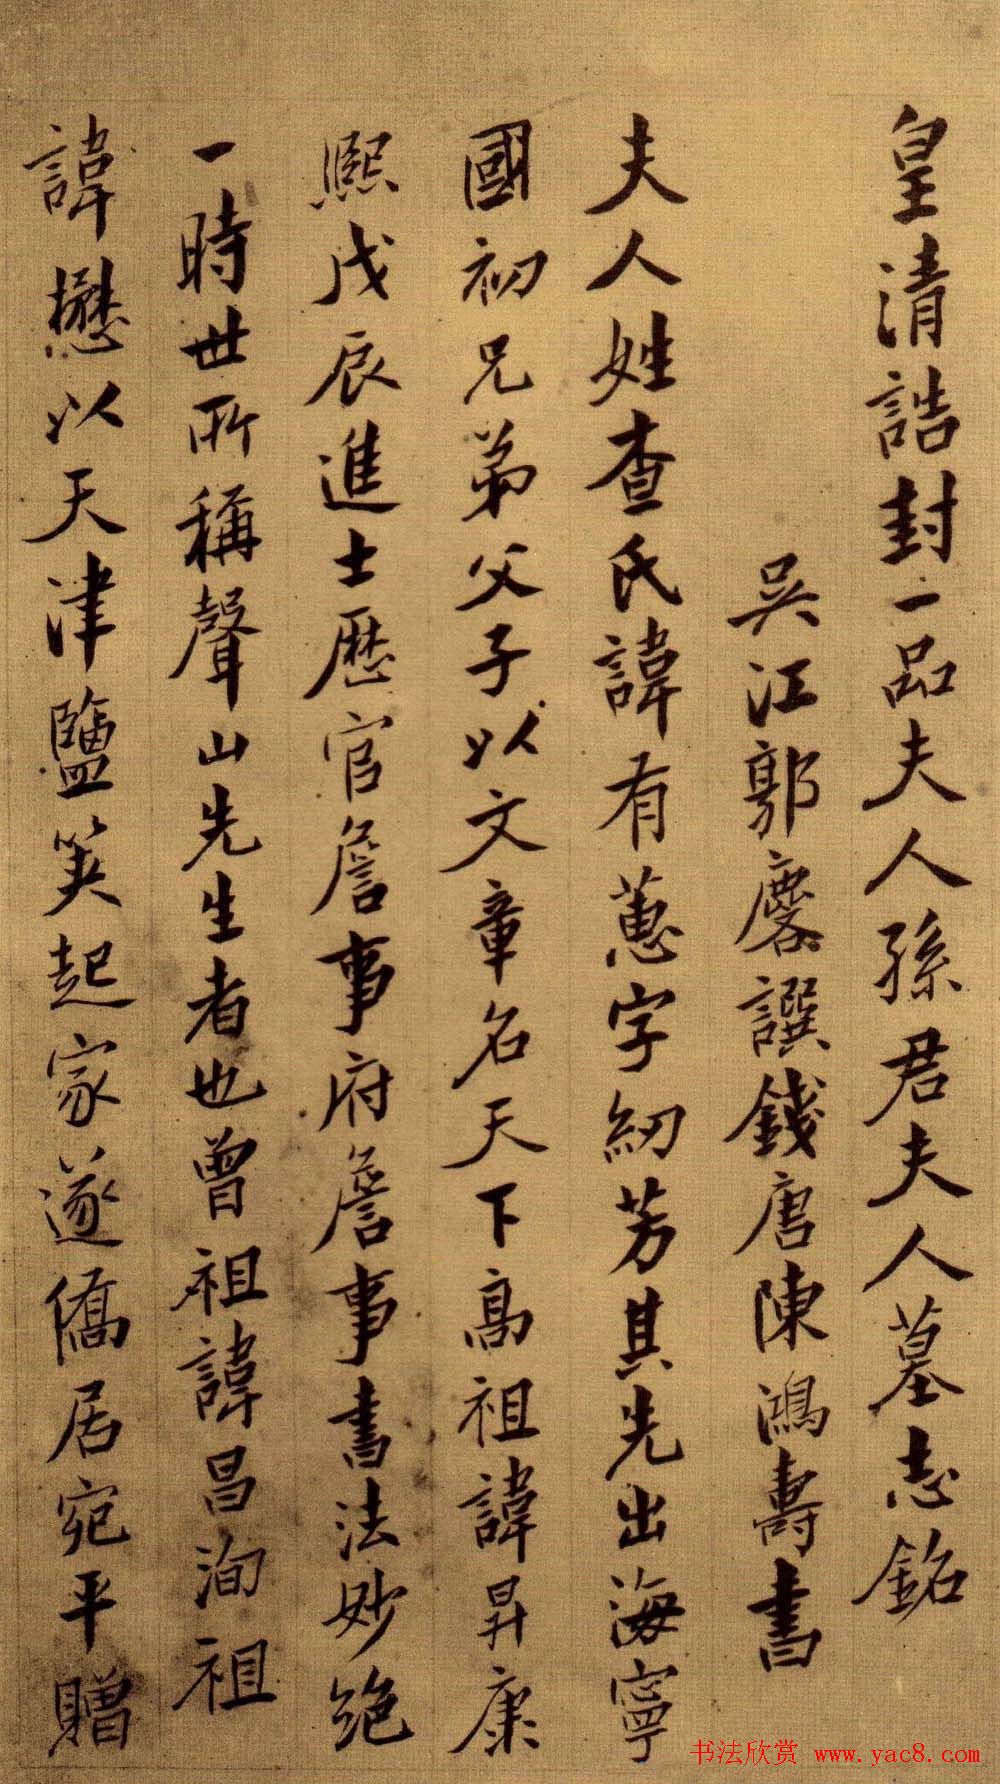 皇清誥封一品夫人孫君夫人墓志銘
吳江郭麐譔錢唐陳鴻壽書
夫人姓查氏諱有蕙字紉芳其先出海寧
國初兄弟父子以文章名天下高祖諱昇康
熙戊辰進士歷官詹事府詹事書法妙绝
一時世所稱聲山先生者也曾祖諱昌洵祖
諱懋以天津鹽筴起家遂僑居宛平贈
书法欣赏 www.yac8.com